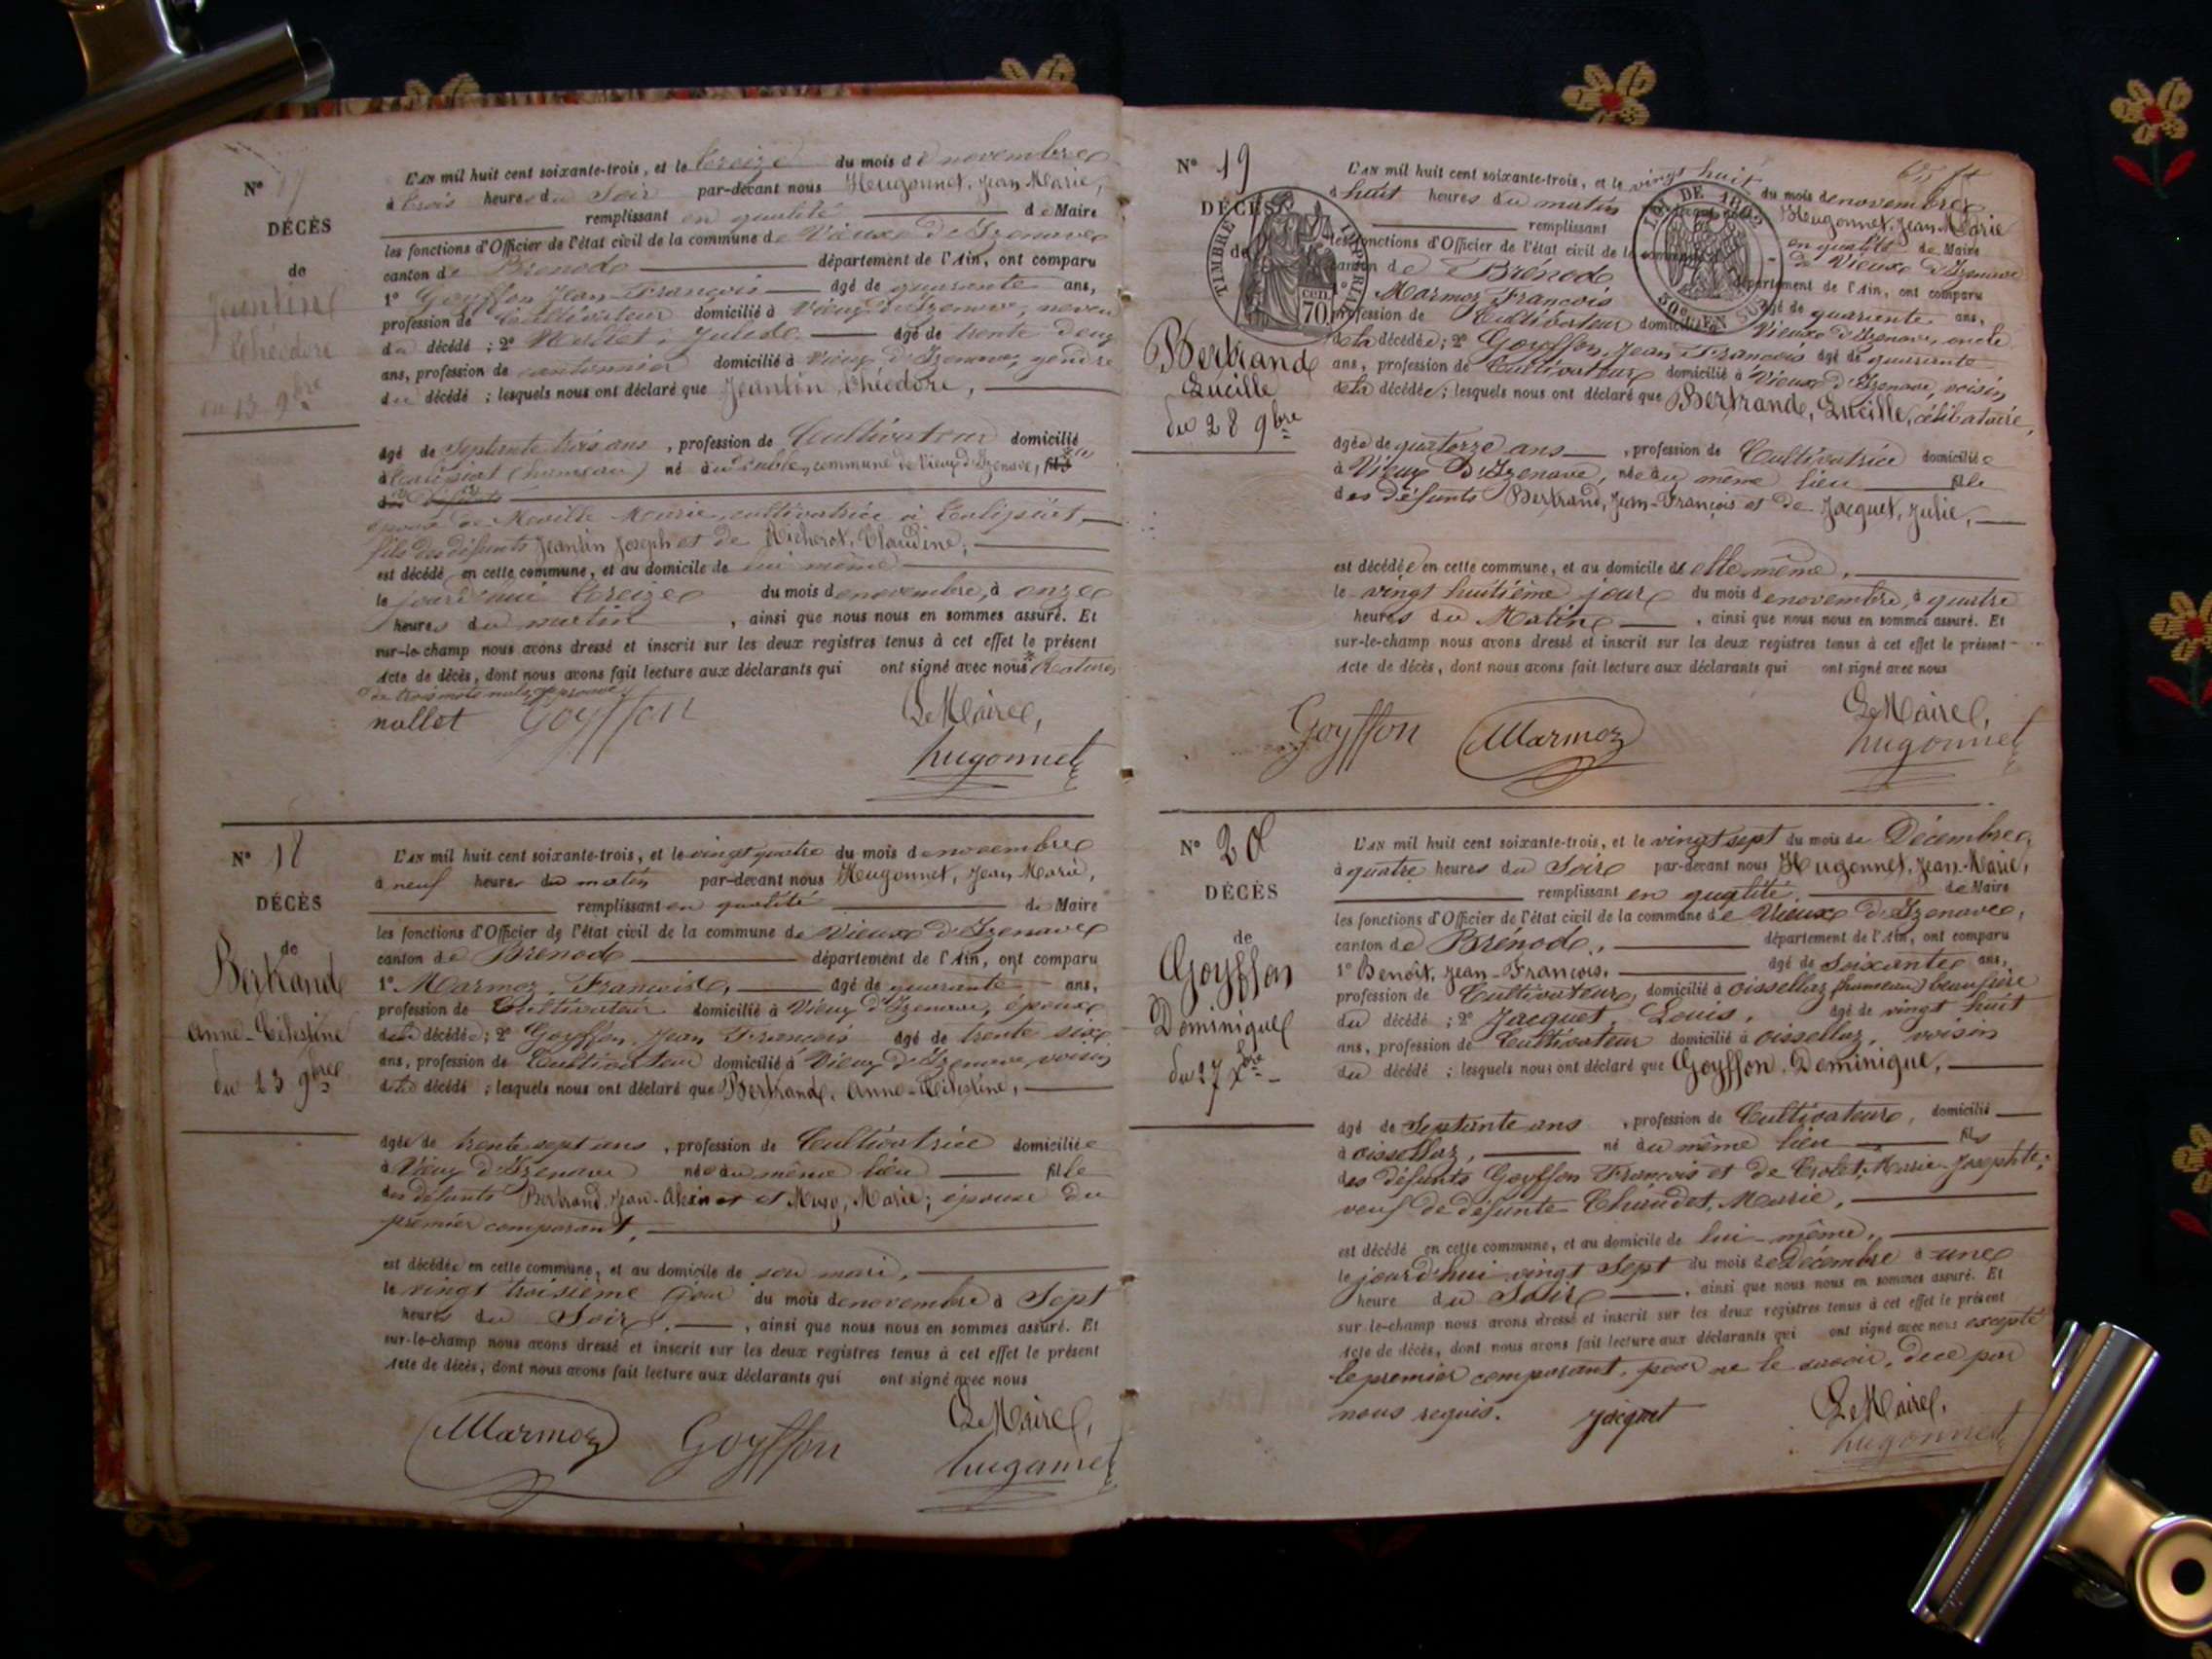 N° 17
DÉCÈS
de
Jeantin
Théodore
du 13 9bre
L'AN mil huit cent soixante-trois, et le treize du mois de novembre
à trois heures du Soir par-devant nous Hugonnet, Jean Marie,
remplissant en qualité de Maire
les fonctions d'Officier de l'état civil de la commune de Vieux d'Izenave
canton de Brenod département de l'Ain, ont comparu
1° Goyffon Jean-François âgé de quarante ans,
profession de Cultivateur domicilié à Vieux d'Izenave, neveu
du décédé ; 2° Nallet, âgé de trente deux
ans, profession de cantonnier domicilié à Vieux d'Izenave, gendre
du décédé ; lesquels nous ont déclaré que Jeantin, Théodore,
âgé de Septante trois ans, profession de Cultivateur domicilié
à (hameau) né au commune de Vieux d'Izenave, fils
époux de Marie, cultivatrice à
fils des défunts Jeantin Joseph et de Richerot, Claudine,
est décédé en cette commune, et au domicile de lui même
le jourd'hui treize du mois de novembre, à onze
heures du matin, ainsi que nous nous en sommes assuré. Et
sur-le-champ nous avons dressé et inscrit sur les deux registres tenus à cet effet le présent
Acte de décès, dont nous avons fait lecture aux déclarants qui ont signé avec nous * Rature
de trois mots nuls, approuvé
nallet Goyffon Le Maire,
hugonnet
N° 18
DÉCÈS
de
Bertrand
Anne-Célestine
du 23 9bre
L'AN mil huit cent soixante-trois, et le vingt quatre du mois de novembre
à neuf heures du matin par-devant nous Hugonnet, Jean Marie,
remplissant en qualité de Maire
les fonctions d'Officier de l'état civil de la commune de Vieux d'Izenave
canton de Brenod département de l'Ain, ont comparu
1° Marmoz, François, âgé de quarante ans,
profession de Cultivateur domicilié à Vieux d'Izenave, époux
de la décédée ; 2° Goyffon, Jean François âgé de trente six
ans, profession de Cultivateur domicilié à Vieux d'Izenave, voisin
de la décédé ; lesquels nous ont déclaré que Bertrand, Anne-Célestine,
âgée de trente sept ans, profession de Cultivatrice domiciliée
à Vieux d'Izenave née au même lieu fille
des défunts Bertrand, Jean- et Marie ; épouse du
premier comparant,
est décédée en cette commune, et au domicile de son mari,
le vingt troisième jour du mois de novembre à Sept
heures du Soir, ainsi que nous nous en sommes assuré. Et
sur-le-champ nous avons dressé et inscrit sur les deux registres tenus à cet effet le présent
Acte de décès, dont nous avons fait lecture aux déclarants qui ont signé avec nous
Marmoz Goyffon Le Maire,
hugonnet
N° 19
DÉCÈS
de
TIMBRE IMPÉRIAL
70 cen.
LOI DE 1862
50e EN SUS
Bertrand
Lucille
du 28 9bre
L'AN mil huit cent soixante-trois, et le vingt huit du mois de novembre
à huit heures du matin Hugonnet, Jean Marie
remplissant en qualité de Maire
les fonctions d'Officier de l'état civil de la commune de Vieux d'Izenave
canton de Brénod département de l'Ain, ont comparu
1° Marmoz François âgé de quarante ans,
profession de Cultivateur domicilié à Vieux d'Izenave, oncle
de la décédée ; 2° Goyffon, Jean François âgé de quarante
ans, profession de Cultivateur domicilié à Vieux d'Izenave, voisin
de la décédée ; lesquels nous ont déclaré que Bertrand, Lucille, célibataire,
âgée de quatorze ans, profession de Cultivatrice domiciliée
à Vieux D'Izenave, née au même lieu fille
des défunts Bertrand, Jean-François et de Jacquet, Julie,
est décédée en cette commune, et au domicile de elle même,
le vingt huitième jour du mois de novembre, à quatre
heures du Matin, ainsi que nous nous en sommes assuré. Et
sur-le-champ nous avons dressé et inscrit sur les deux registres tenus à cet effet le présent
Acte de décès, dont nous avons fait lecture aux déclarants qui ont signé avec nous
Goyffon Marmoz Le Maire,
hugonnet
N° 20
DÉCÈS
de
Goyffon
Dominique
du 27 Xbre
L'AN mil huit cent soixante-trois, et le vingt sept du mois de Décembre,
à quatre heures du Soir par-devant nous Hugonnet, Jean-Marie,
remplissant en qualité, de Maire
les fonctions d'Officier de l'état civil de la commune de Vieux d'Izenave,
canton de Brénod, département de l'Ain, ont comparu
1° Benoît, Jean-François, âgé de Soixante ans,
profession de Cultivateur, domicilié à oissellaz (hameau) beaufrère
du décédé ; 2° Jacquet, Louis, âgé de vingt huit
ans, profession de Cultivateur domicilié à oissellaz, voisin
du décédé ; lesquels nous ont déclaré que Goyffon, Dominique,
âgé de Septante ans, profession de Cultivateur, domicilié
à oissellaz, né au même lieu fils
des défunts Goyffon François et de Marie-Josephte ;
veuf de défunte Marie,
est décédé en cette commune, et au domicile de lui-même,
le jourd'hui vingt Sept du mois de Décembre à une
heure du Soir, ainsi que nous nous en sommes assuré. Et
sur-le-champ nous avons dressé et inscrit sur les deux registres tenus à cet effet le présent
Acte de décès, dont nous avons fait lecture aux déclarants qui ont signé avec nous excepté
le premier comparant, pour ne le savoir, de ce par
nous requis. Jacquet Le Maire,
hugonnet